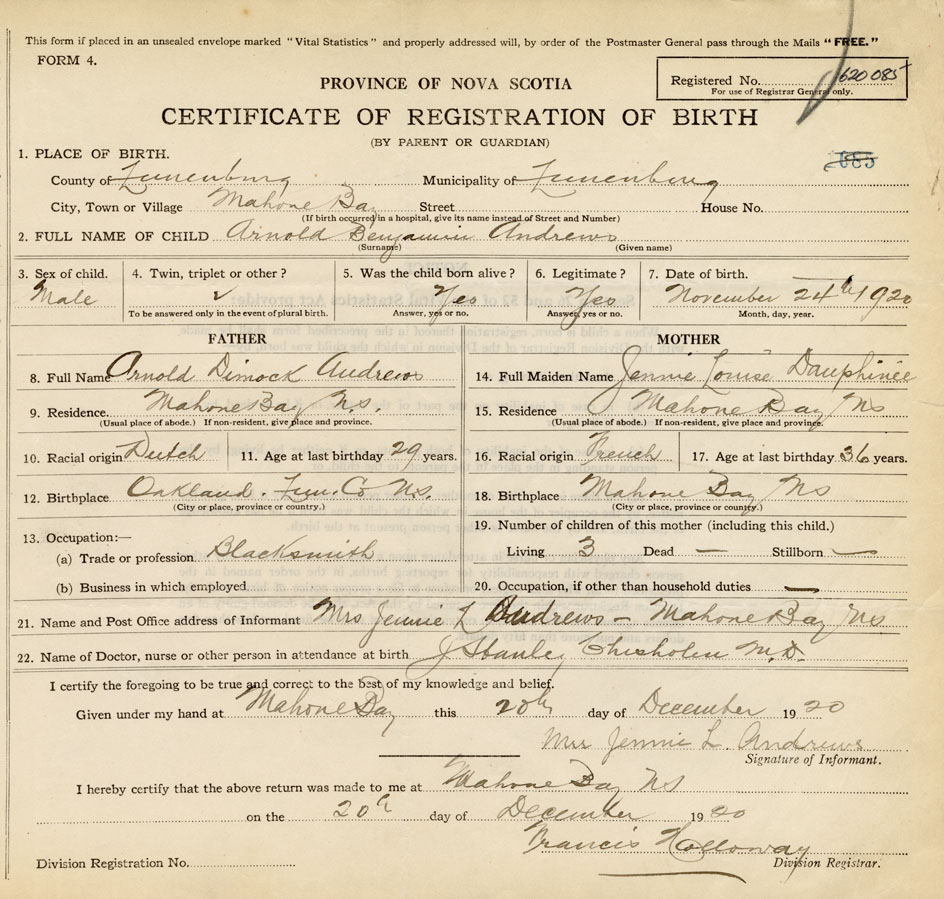 This form if placed in an unsealed envelope marked "Vital Statistics" and properly addressed will, by order of the Postmaster General pass through the Mails "FREE."
FORM 4.
Registered No. 620085
For use of Registrar General only.
PROVINCE OF NOVA SCOTIA
CERTIFICATE OF REGISTRATION OF BIRTH
(BY PARENT OR GUARDIAN)
1. PLACE OF BIRTH.
685
County of Lunenburg Municipality of Lunenburg
City, Town or Village Mahone Bay Street House No.
(If birth occurred in a hospital, give its name instead of Street and Number)
2. FULL NAME OF CHILD Arnold Benjamin Andrews
(Surname) (Given name)
3. Sex of child. 4. Twin, triplet or other? 5. Was the child born alive? 6. Legitimate? 7. Date of birth.
Male ✓ Yes Yes November 24th 1920
To be answered only in the event of plural birth. Answer, yes or no. Answer, yes or no. Month, day, year.
FATHER MOTHER
8. Full Name Arnold Dimock Andrews 14. Full Maiden Name Jennie Louise Dauphinee
9. Residence. Mahone Bay N.S. 15. Residence Mahone Bay NS
(Usual place of abode.) If non-resident, give place and province. (Usual place of abode.) If non-resident, give place and province.
10. Racial origin Dutch 11. Age at last birthday 29 years. 16. Racial origin French 17. Age at last birthday 36 years.
12. Birthplace Oakland. Lun. Co N.S. 18. Birthplace Mahone Bay NS
(City or place, province or country.) (City or place, province or country.)
13. Occupation:— 19. Number of children of this mother (including this child.)
(a) Trade or profession Blacksmith Living 3 Dead — Stillborn —
(b) Business in which employed 20. Occupation, if other than household duties —
21. Name and Post Office address of Informant Mrs Jennie L Andrews - Mahone Bay NS
22. Name of Doctor, nurse or other person in attendance at birth J Stanley Chisholm M.D.
I certify the foregoing to be true and correct to the best of my knowledge and belief.
Given under my hand at Mahone Bay this 20th day of December 1920
Mrs Jennie L. Andrews
Signature of Informant.
I hereby certify that the above return was made to me at Mahone Bay NS
on the 20th day of December 1920
Francis Holloway
Division Registration No. Division Registrar.